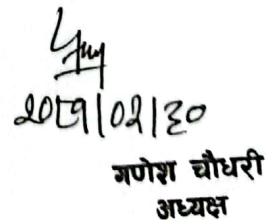 २०८१|०२|३०
गणेश चौधरी
अध्यक्ष